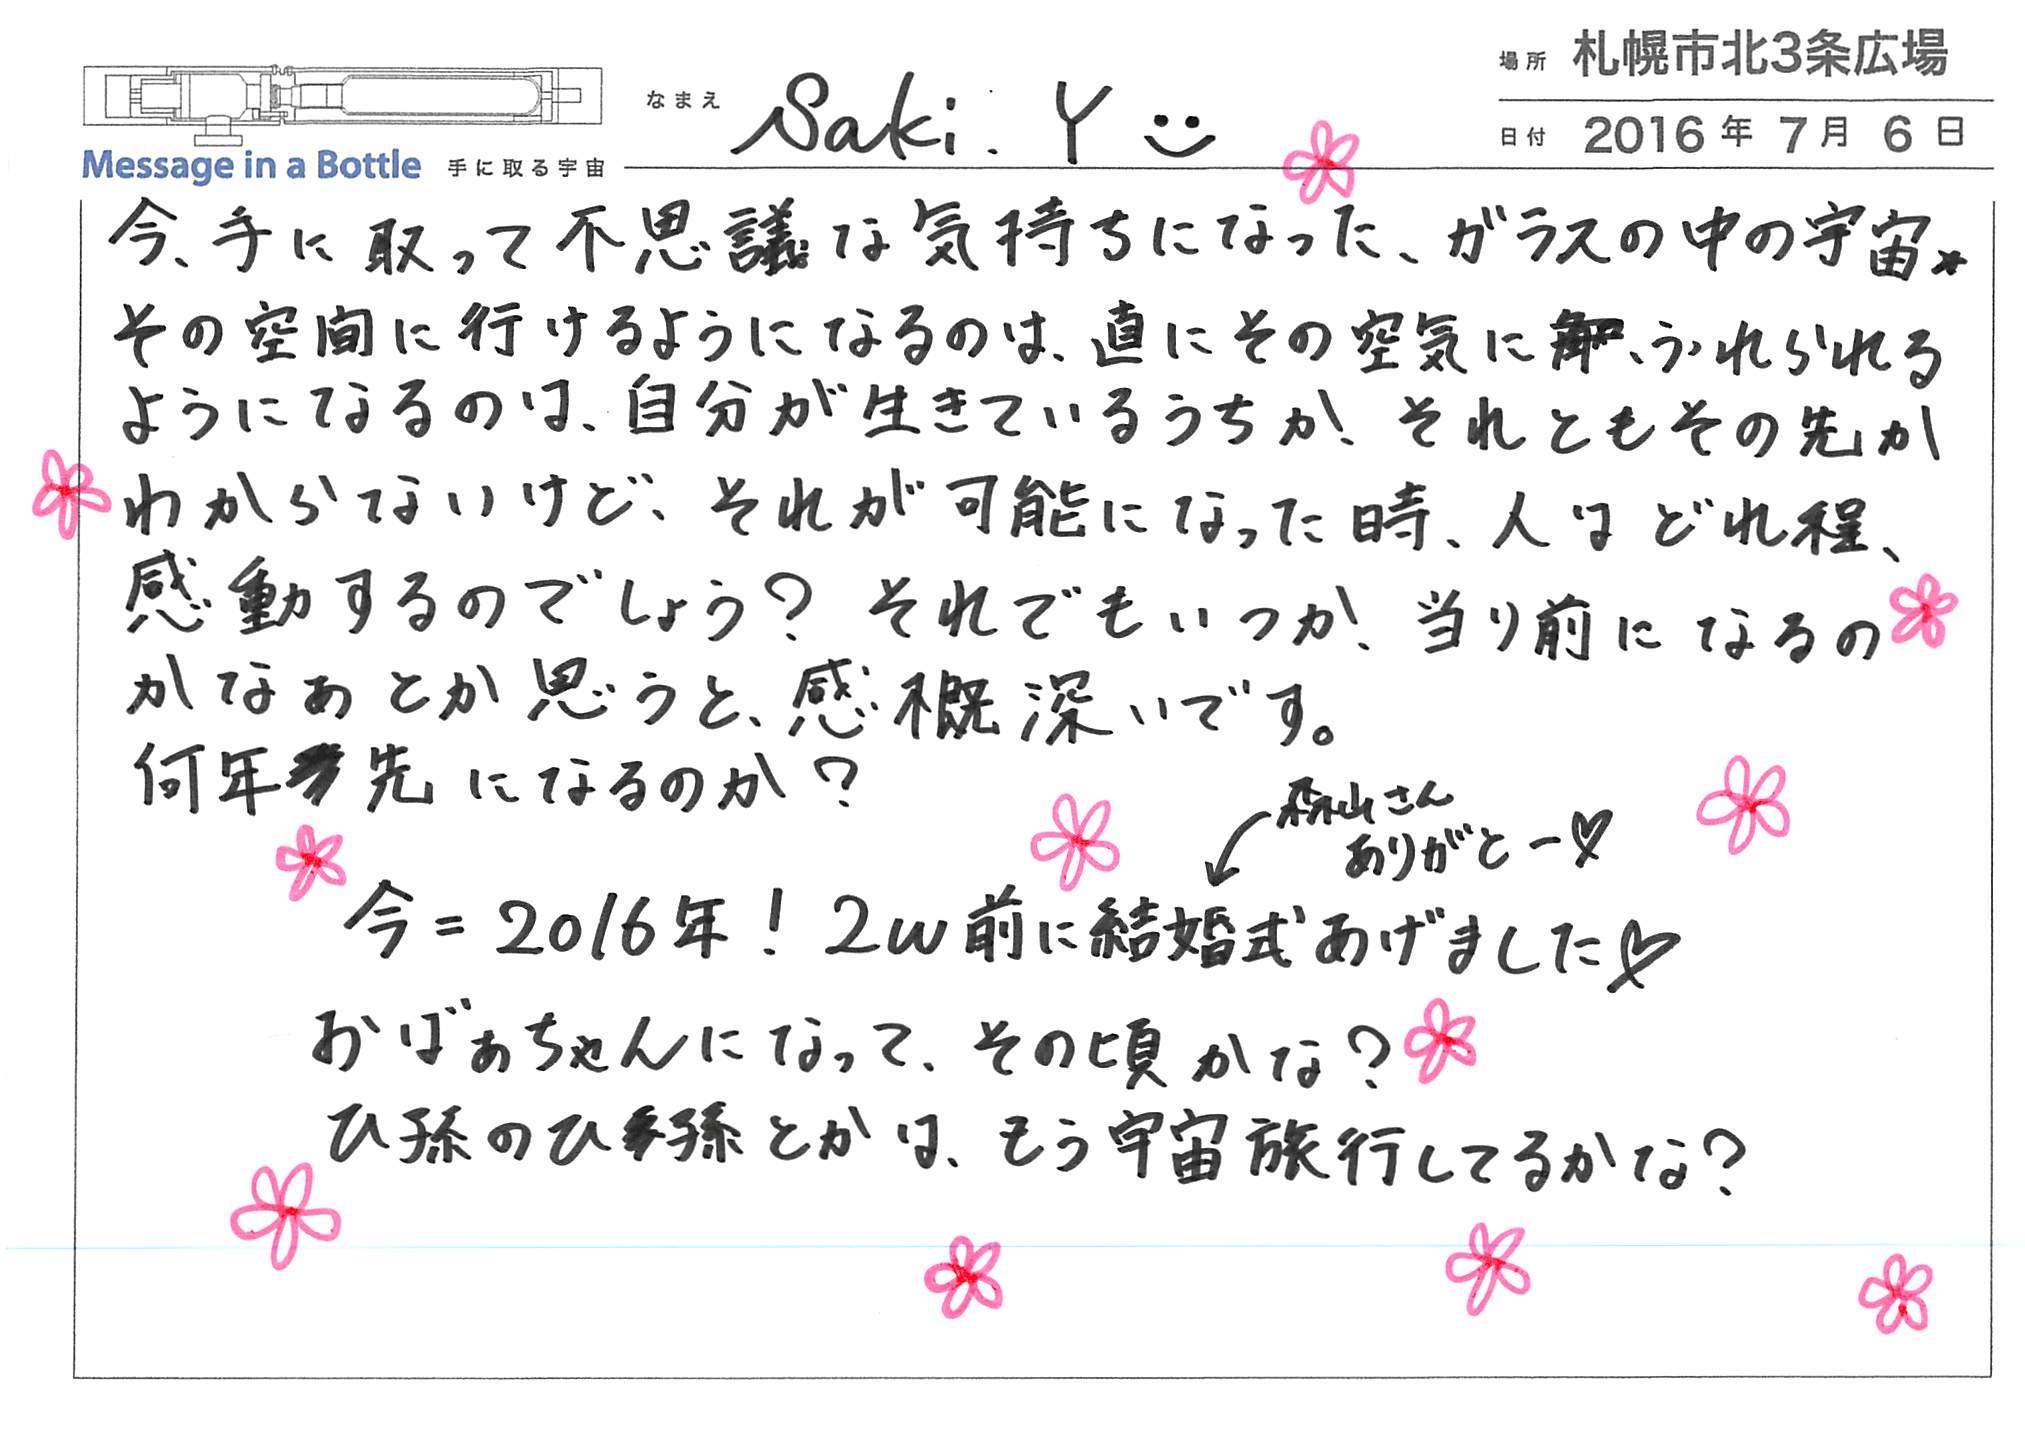 場所 札幌市北3条広場
なまえ Saki. Y
日付 2016 年 7 月 6 日
Message in a Bottle 手に取る宇宙
今、手に取って不思議な気持ちになった、ガラスの中の宇宙★
その空間に行けるようになるのは、直にその空気に、ふれられる
ようになるのは、自分が生きているうちか、それともその先か
わからないけど、それが可能になった時、人はどれ程、
感動するのでしょう? それでもいつか、当り前になるの
かなぁとか思うと、感慨深いです。
何年先になるのか?
森山さん
ありがとー♡
今=2016年! 2w前に結婚式あげました♡
おばぁちゃんになって、その頃かな?
ひ孫のひ孫とかは、もう宇宙旅行してるかな?